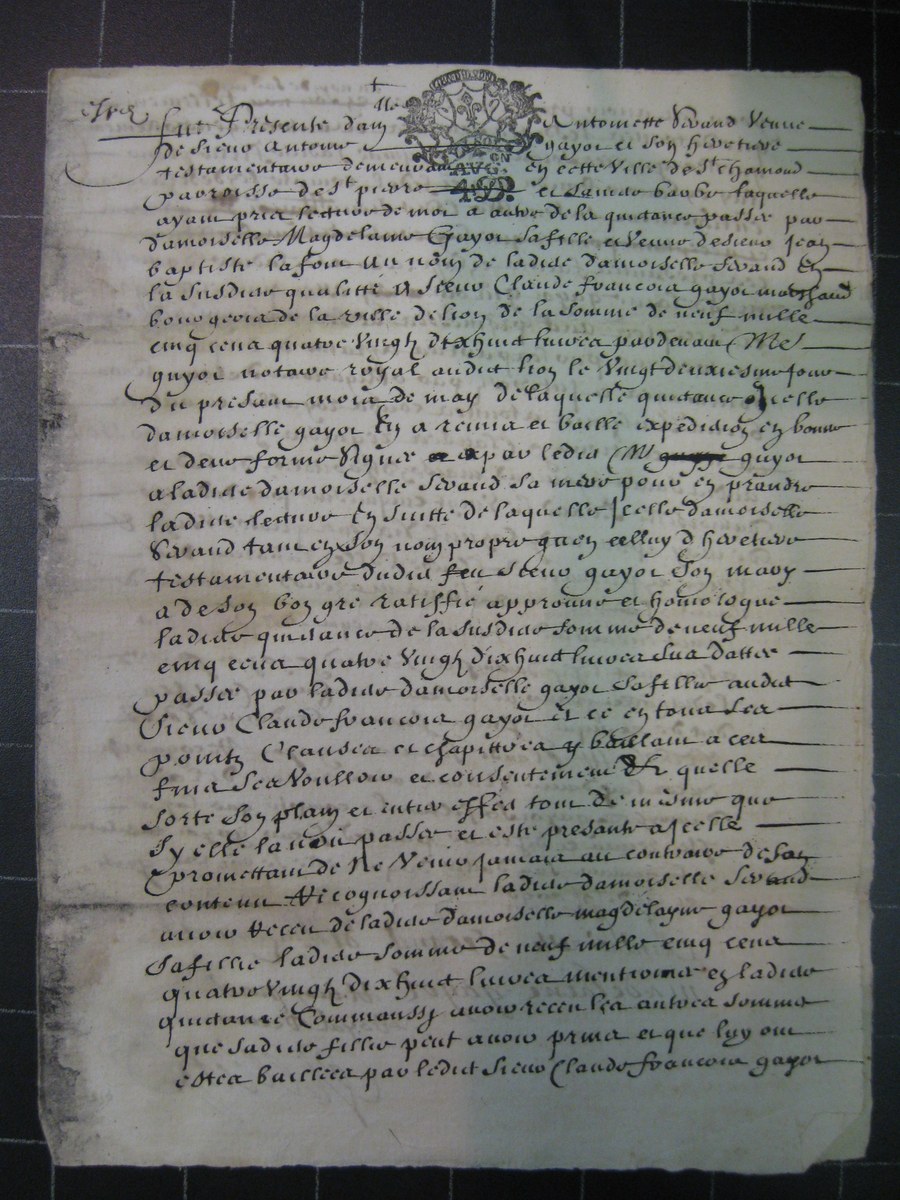 Fut Presente dam lle Antoinette Sivand Veuve
de Sieur Antoine gayot et Son heretiere
testamentaire demeurant en cette Ville de St chamond
parroisse de St pierre et Sainte barbe laquelle
ayant pris lecture de moi a autre de la quictance passee par
damoiselle Magdelaine Gayot Sa fille et Veuve de Sieur jean
baptiste lafont au nom de ladite damoiselle Sivand En
la Susdite qualitté a Sieur Claude francois gayot marchand
bourgeois de la ville de lion de la Somme de neuf mille
cinq cens quatre Vingtz dixhuict livres pardevant Me
guyot notaire royal audit lion le Vingt deuxiesme jour
du presant mois de may de laquelle quictance icelle
damoiselle gayot En a remis et baille expedition en bonne
et deue forme Signee par ledit Me guyot
a ladite damoiselle Sivand Sa mere pour en prandre
ladite lecture En Suitte de laquelle jcelle damoiselle
Sivand tant en Son nom propre qu'en celluy d'heretiere
testamentaire dudit feu Sieur gayot Son mary
a de Son bon gre ratiffié approuvé et homologue
ladite quictance de la Susdite Somme de neuf mille
cinq cens quatre Vingtz dixhuict livres Sus dattee
passee par ladite damoiselle gayot Sa fille audit
Sieur Claude francois gayot et ce en tous Ses
pointz Clauses et chapittres y baillant a ces
fins Ses Voulloir et consentement quelle
Sorte Son plain et entier effect tout de mesme que
Sy elle lavoit passee et esté presante a jcelle
promettant de Ne Venir jamais au contraire de Son
contenu Recognoissant ladite damoiselle Sivand
avoir Receu de ladite damoiselle magdelayne gayot
Sa fille ladite Somme de neuf mille cinq cens
quatre Vingtz dixhuict livres mentionnés en ladite
quictance Comm'aussy avoir receu les autres Somme
que Sadite fillie peut avoir prins et que luy ont
estes baillees par ledit Sieur Claude francois gayot